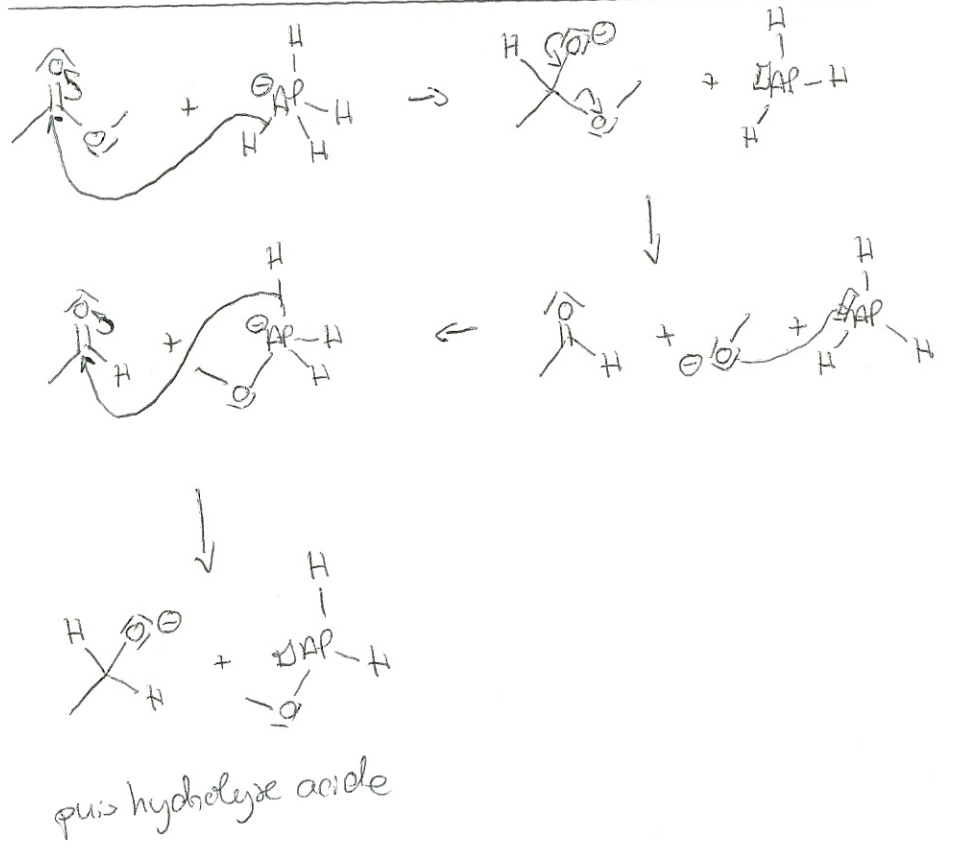 H
O
⊖
AP
H
H
H
O
+
→
H
O ⊖
O
+
H
AP
H
H
↓
H
O
H
+
⊖
AP
H
H
O
←
O
H
+
⊖ O
+
H
AP
H
H
↓
H
O ⊖
H
+
H
AP
H
O
puis hydrolyse acide